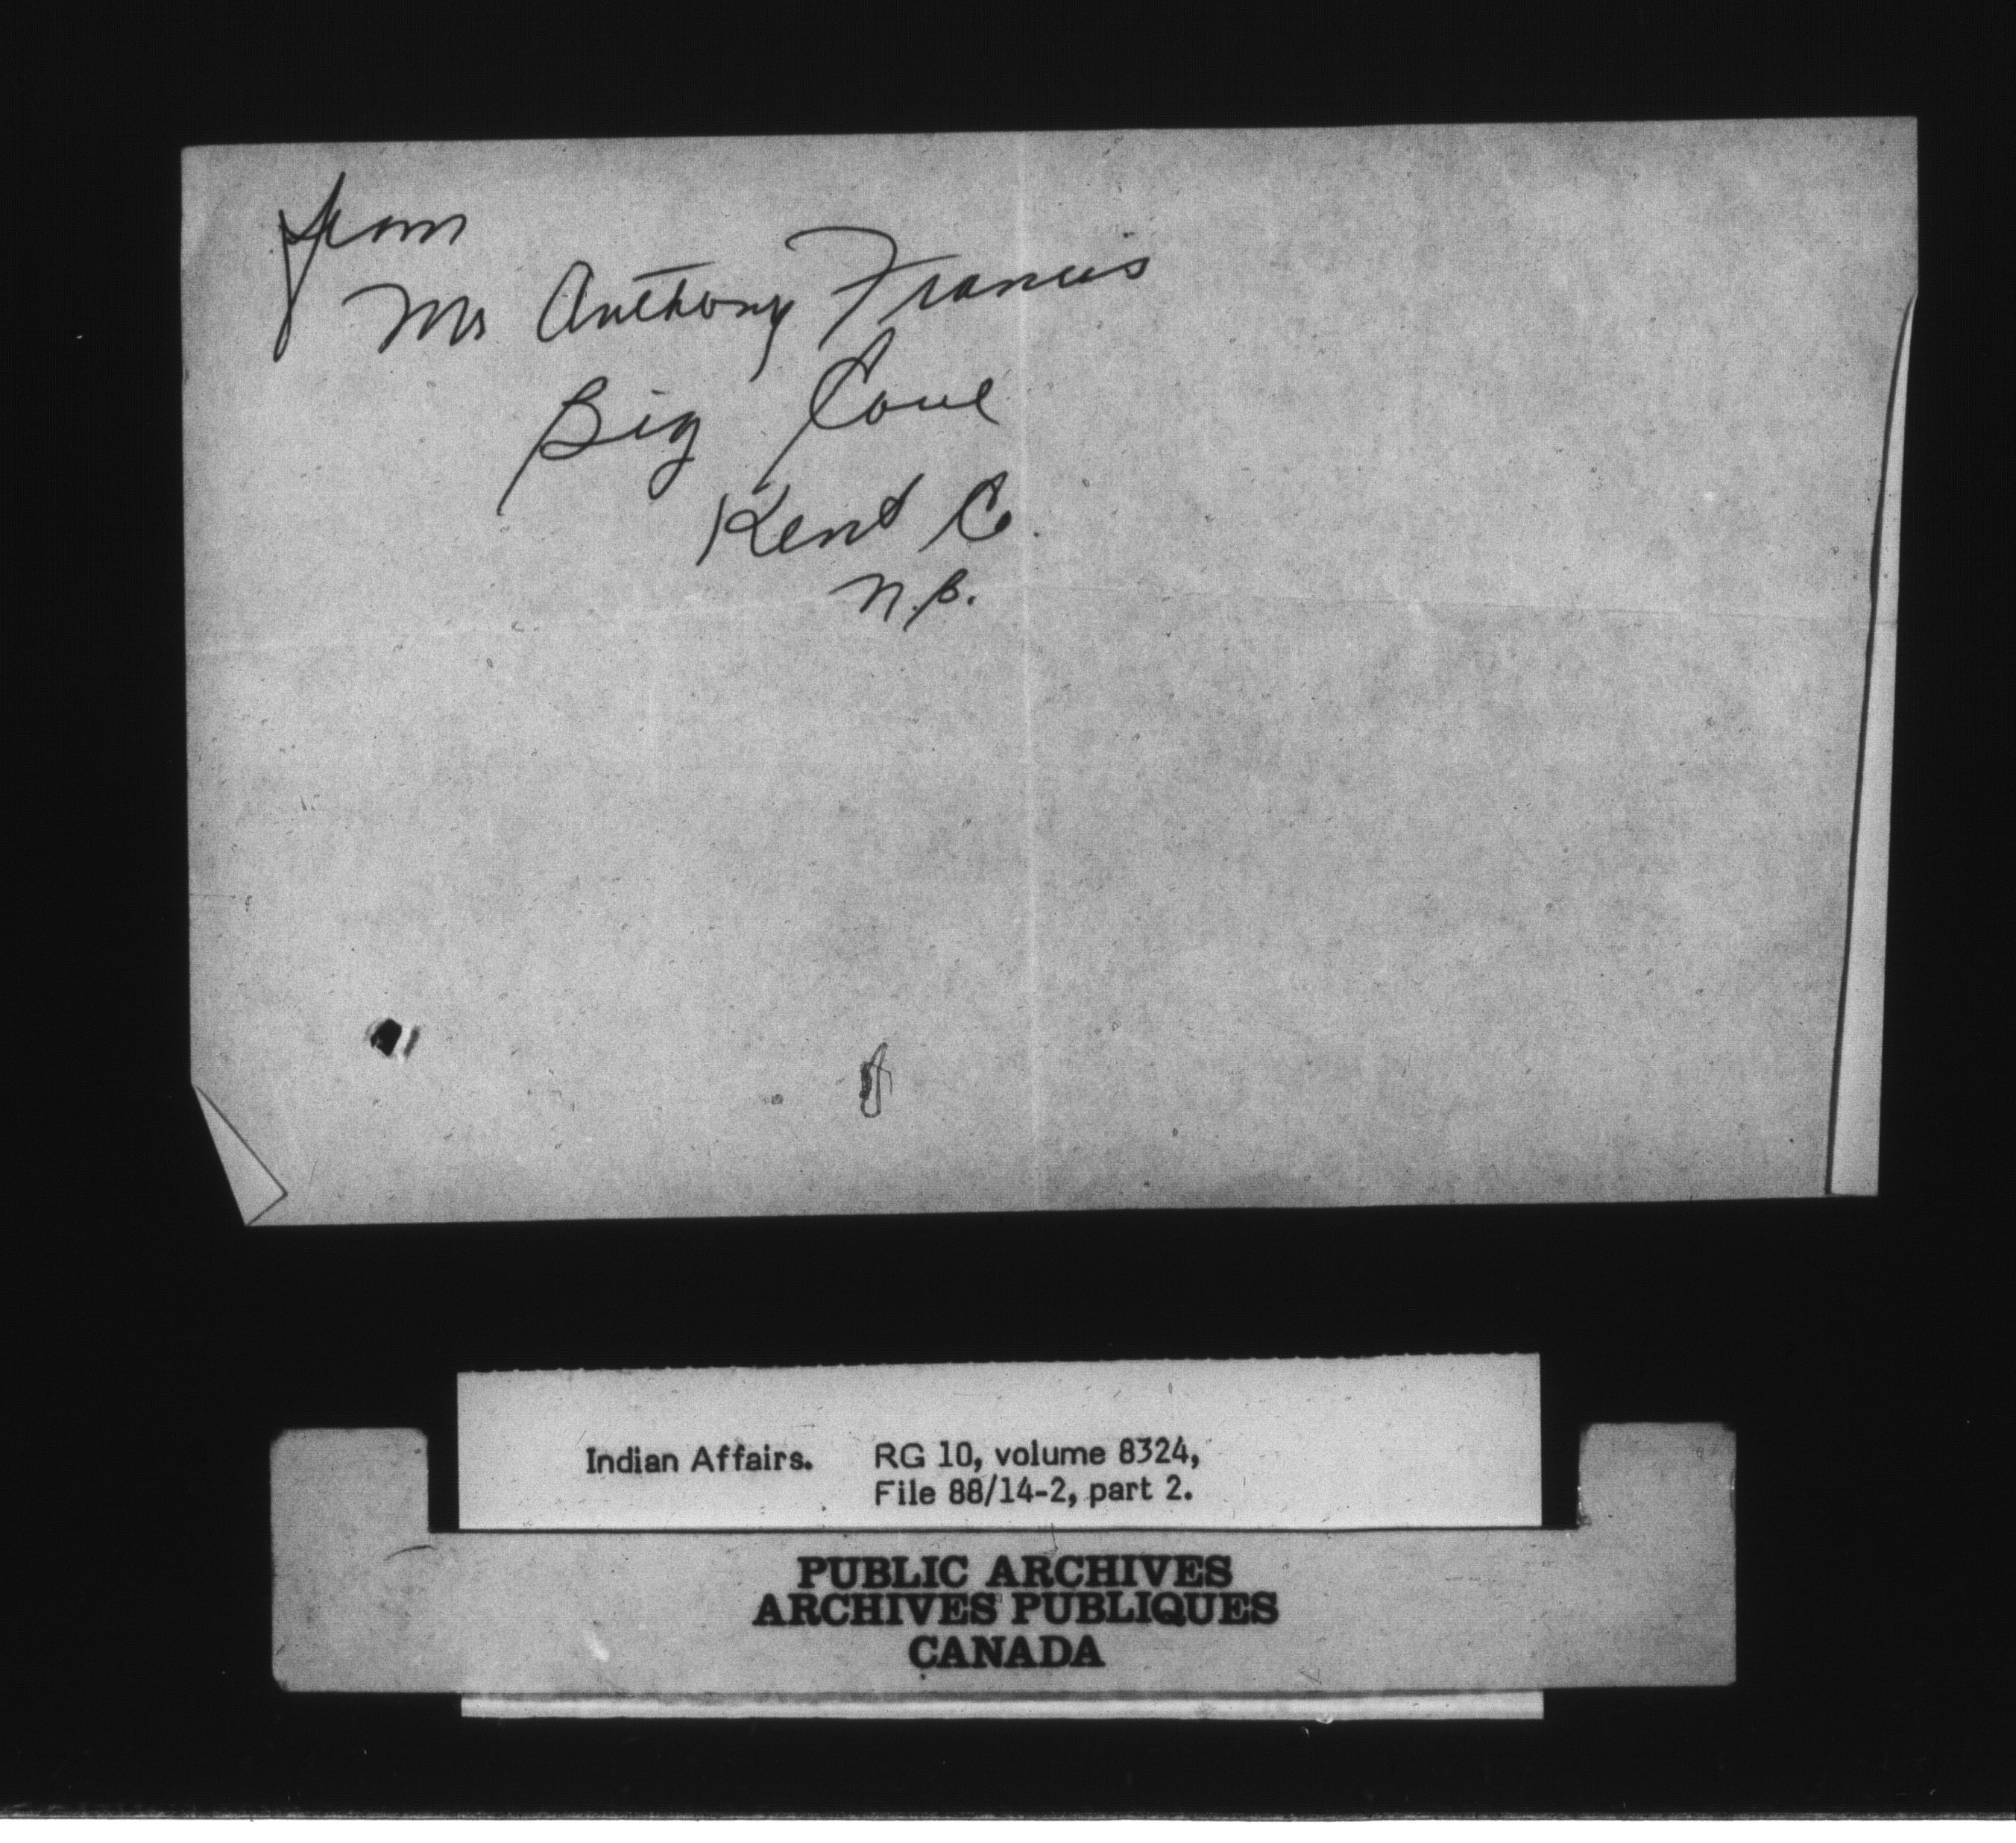 from
Mr Anthony Francis
Big Cove
Kent Co.
N.B.
Indian Affairs. RG 10, volume 8324,
File 88/14-2, part 2.
PUBLIC ARCHIVES
ARCHIVES PUBLIQUES
CANADA